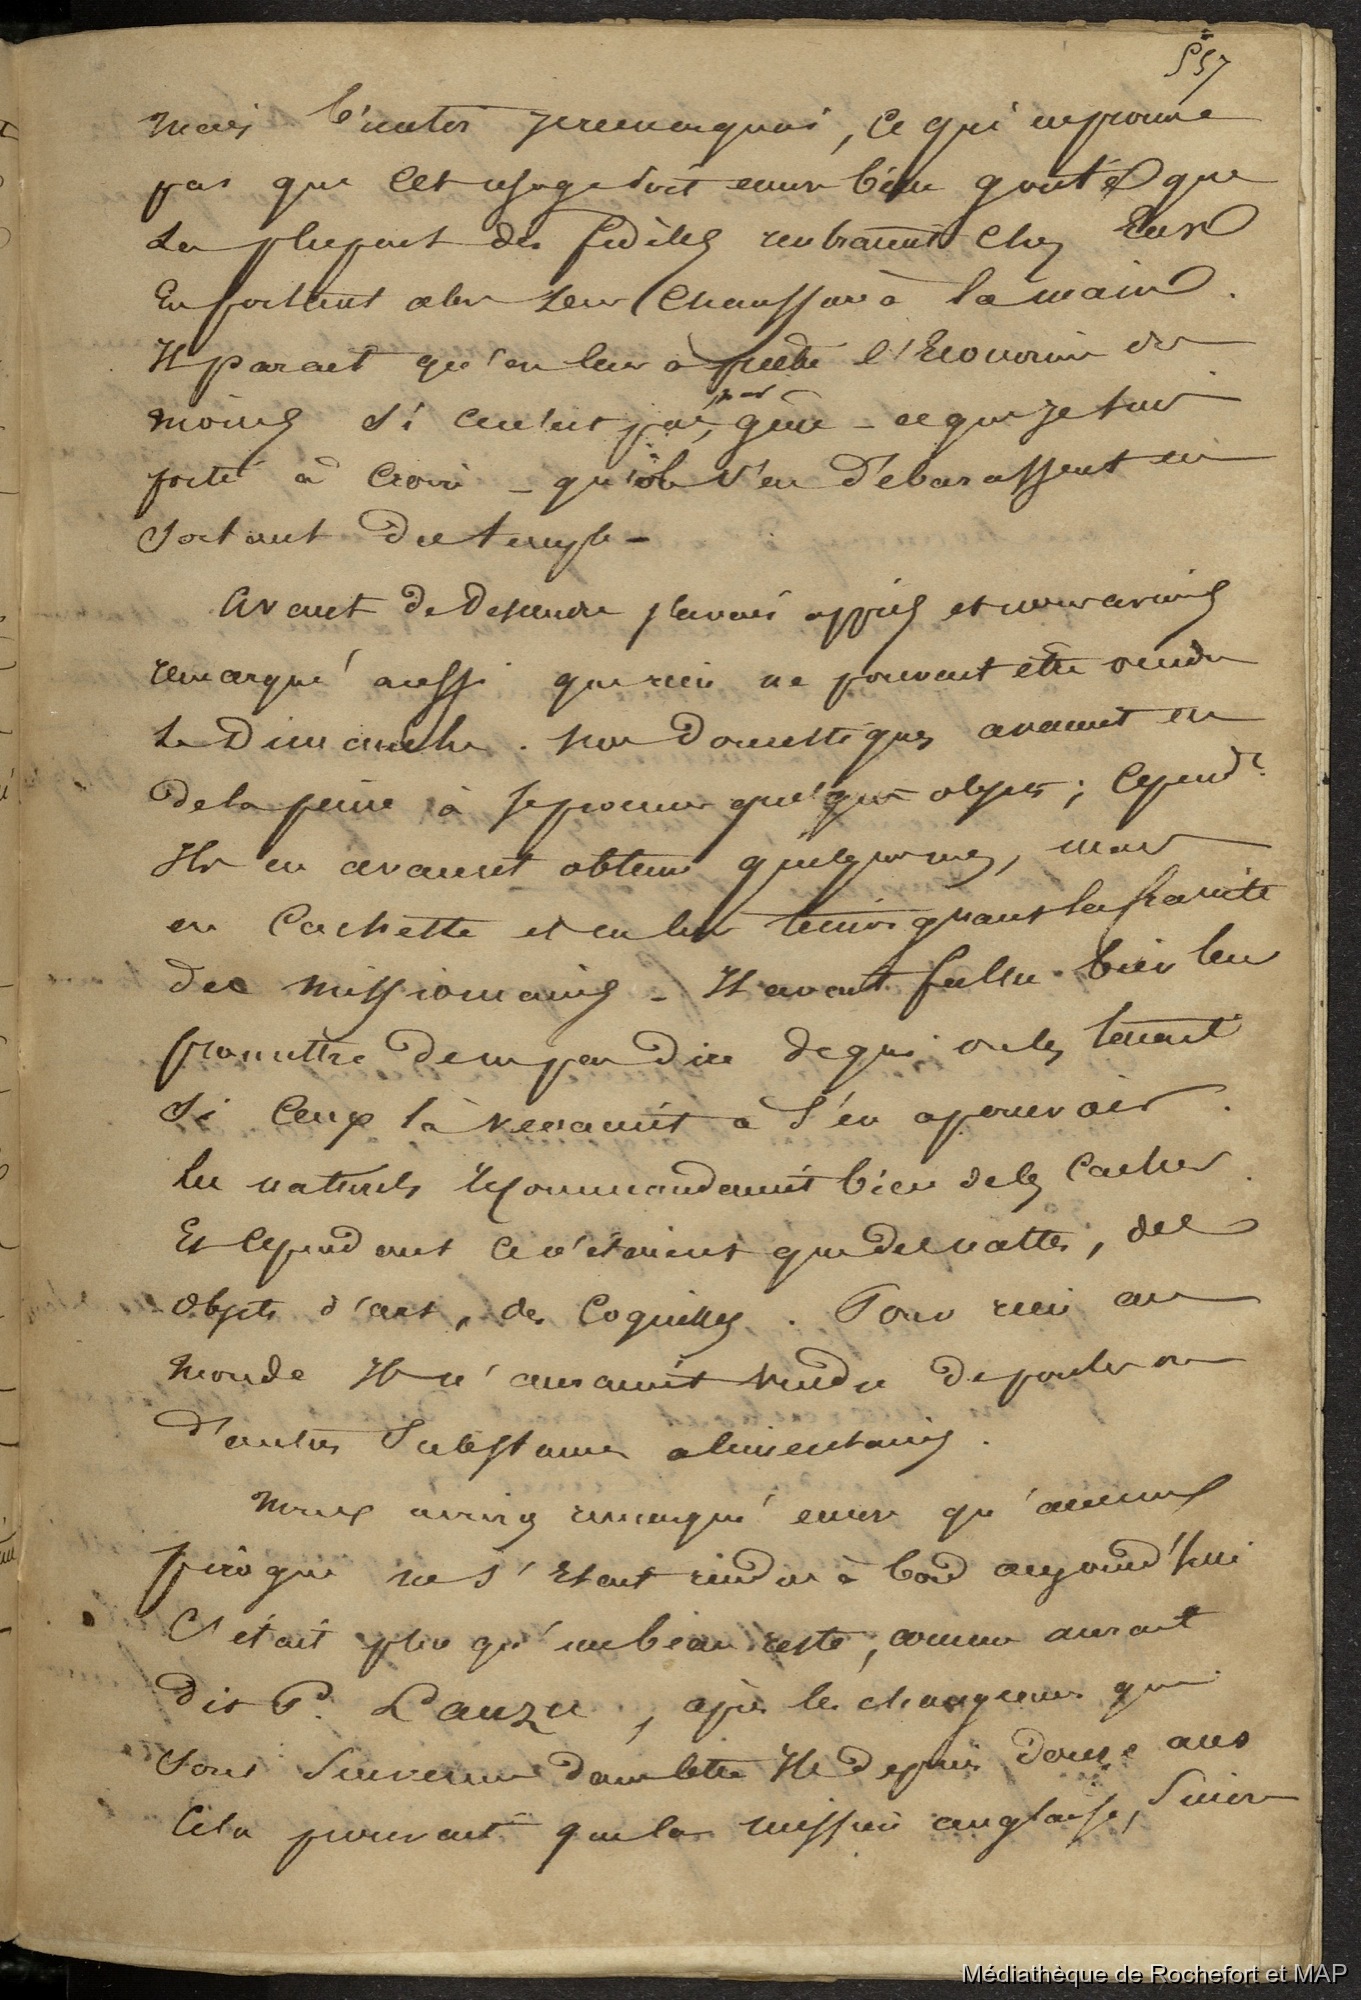 557
mais bientôt je remarquai, ce qui ne prouve
pas que cet usage soit encore bien gouté que
la plupart des fidèles rentraient chez Eux
En portant alors leur Chaussure à la main.
Il parait qu'on leur a prêché l'Economie ou
moins si cela n'est pas, par gêne _ ce que je suis
porté à Croire _ qu'ils s'en débarassent en
Sortant du temple _
Avant de descendre j'avais appris et nous avions
remarqué aussi que rien ne pouvait être vendu
le Dimanche. nos domestiques avaient eu
de la peine à se procurer quelques objets; Cepend.t
Ils en avaient obtenu quelques uns, mais
en Cachette et en leur témoignant la crainte
des missionnaires _ Il avait fallu bien leur
promettre de ne pas dire de qui on les tenait
Si Ceux là venaient à S'en apercevoir.
les naturels recommandaient bien de les Cacher.
Et Cependant Ce n'étaient que des nattes, des
objets d'art, des Coquilles. Pour rien au
monde Ils n'auraient vendu de poules ou
d'autres Substances alimentaires.
Nous avions remarqué encore qu'aucune
pirogue ne S'était rendue à bord aujourd'hui
C'était plus qu'un beau reste, comme aurait
dit P. Lauzu, après les changemens qui
Sont Survenus dans cette Ile depuis douze ans
Cela prouvait que la mission anglaise, Suivre